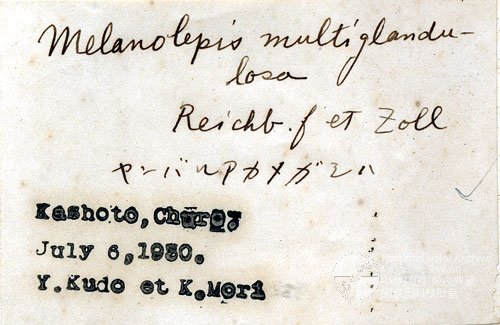 Melanolepis multiglandu-
losa
Reichb. f et Zoll
ヤンバルアカメガシハ
Kashoto,
July 6,1930.
Y.Kudo et K.Mori